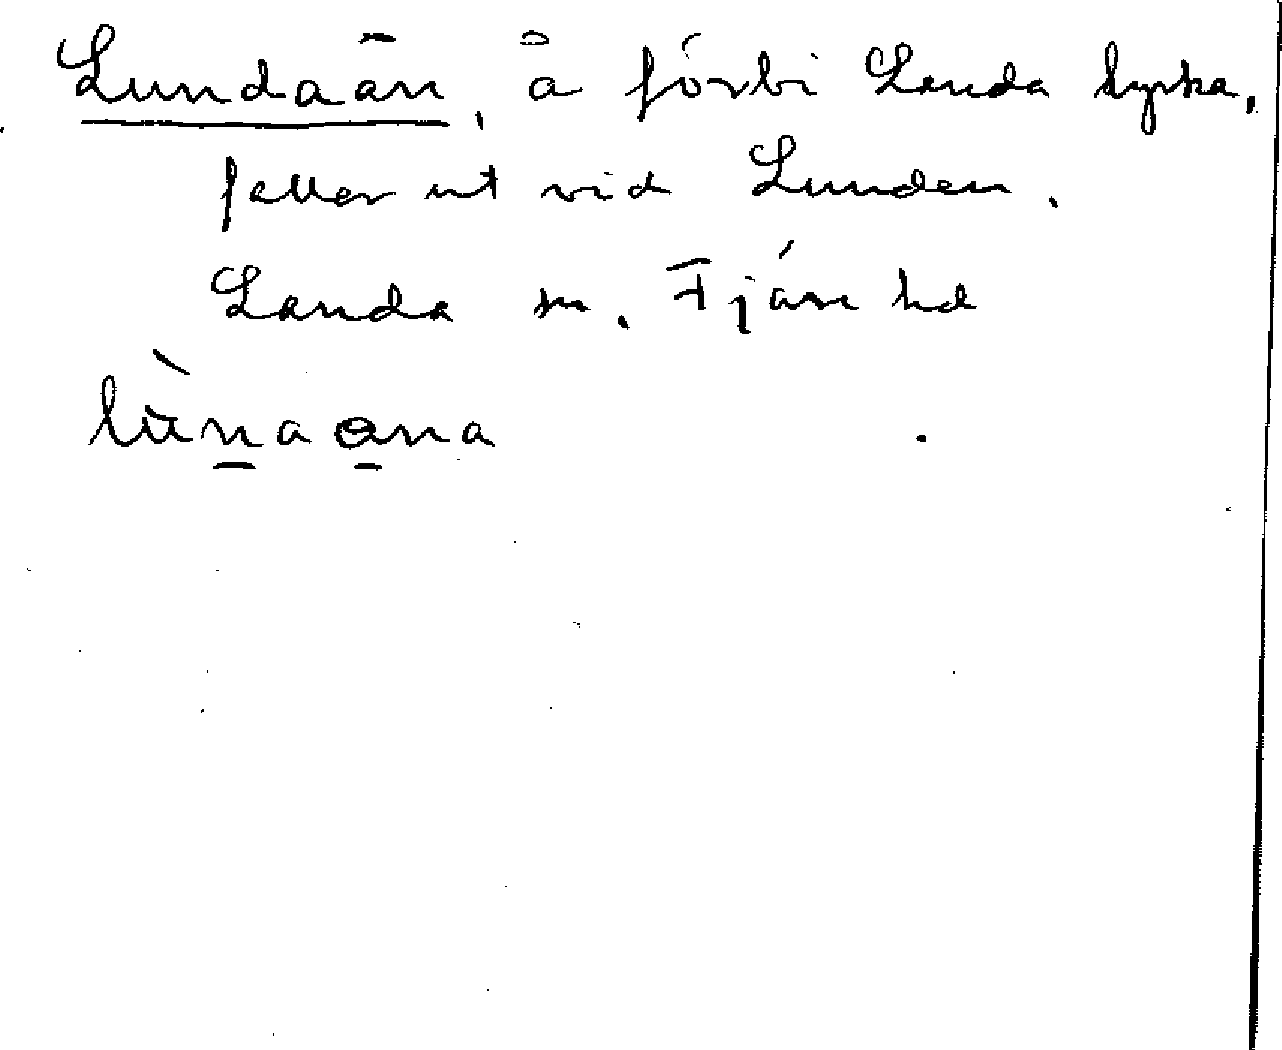 Lundaån, å förbi Landa kyrka,
faller ut vid Lunden.
Landa sn. Fjäre hd
lùnaana